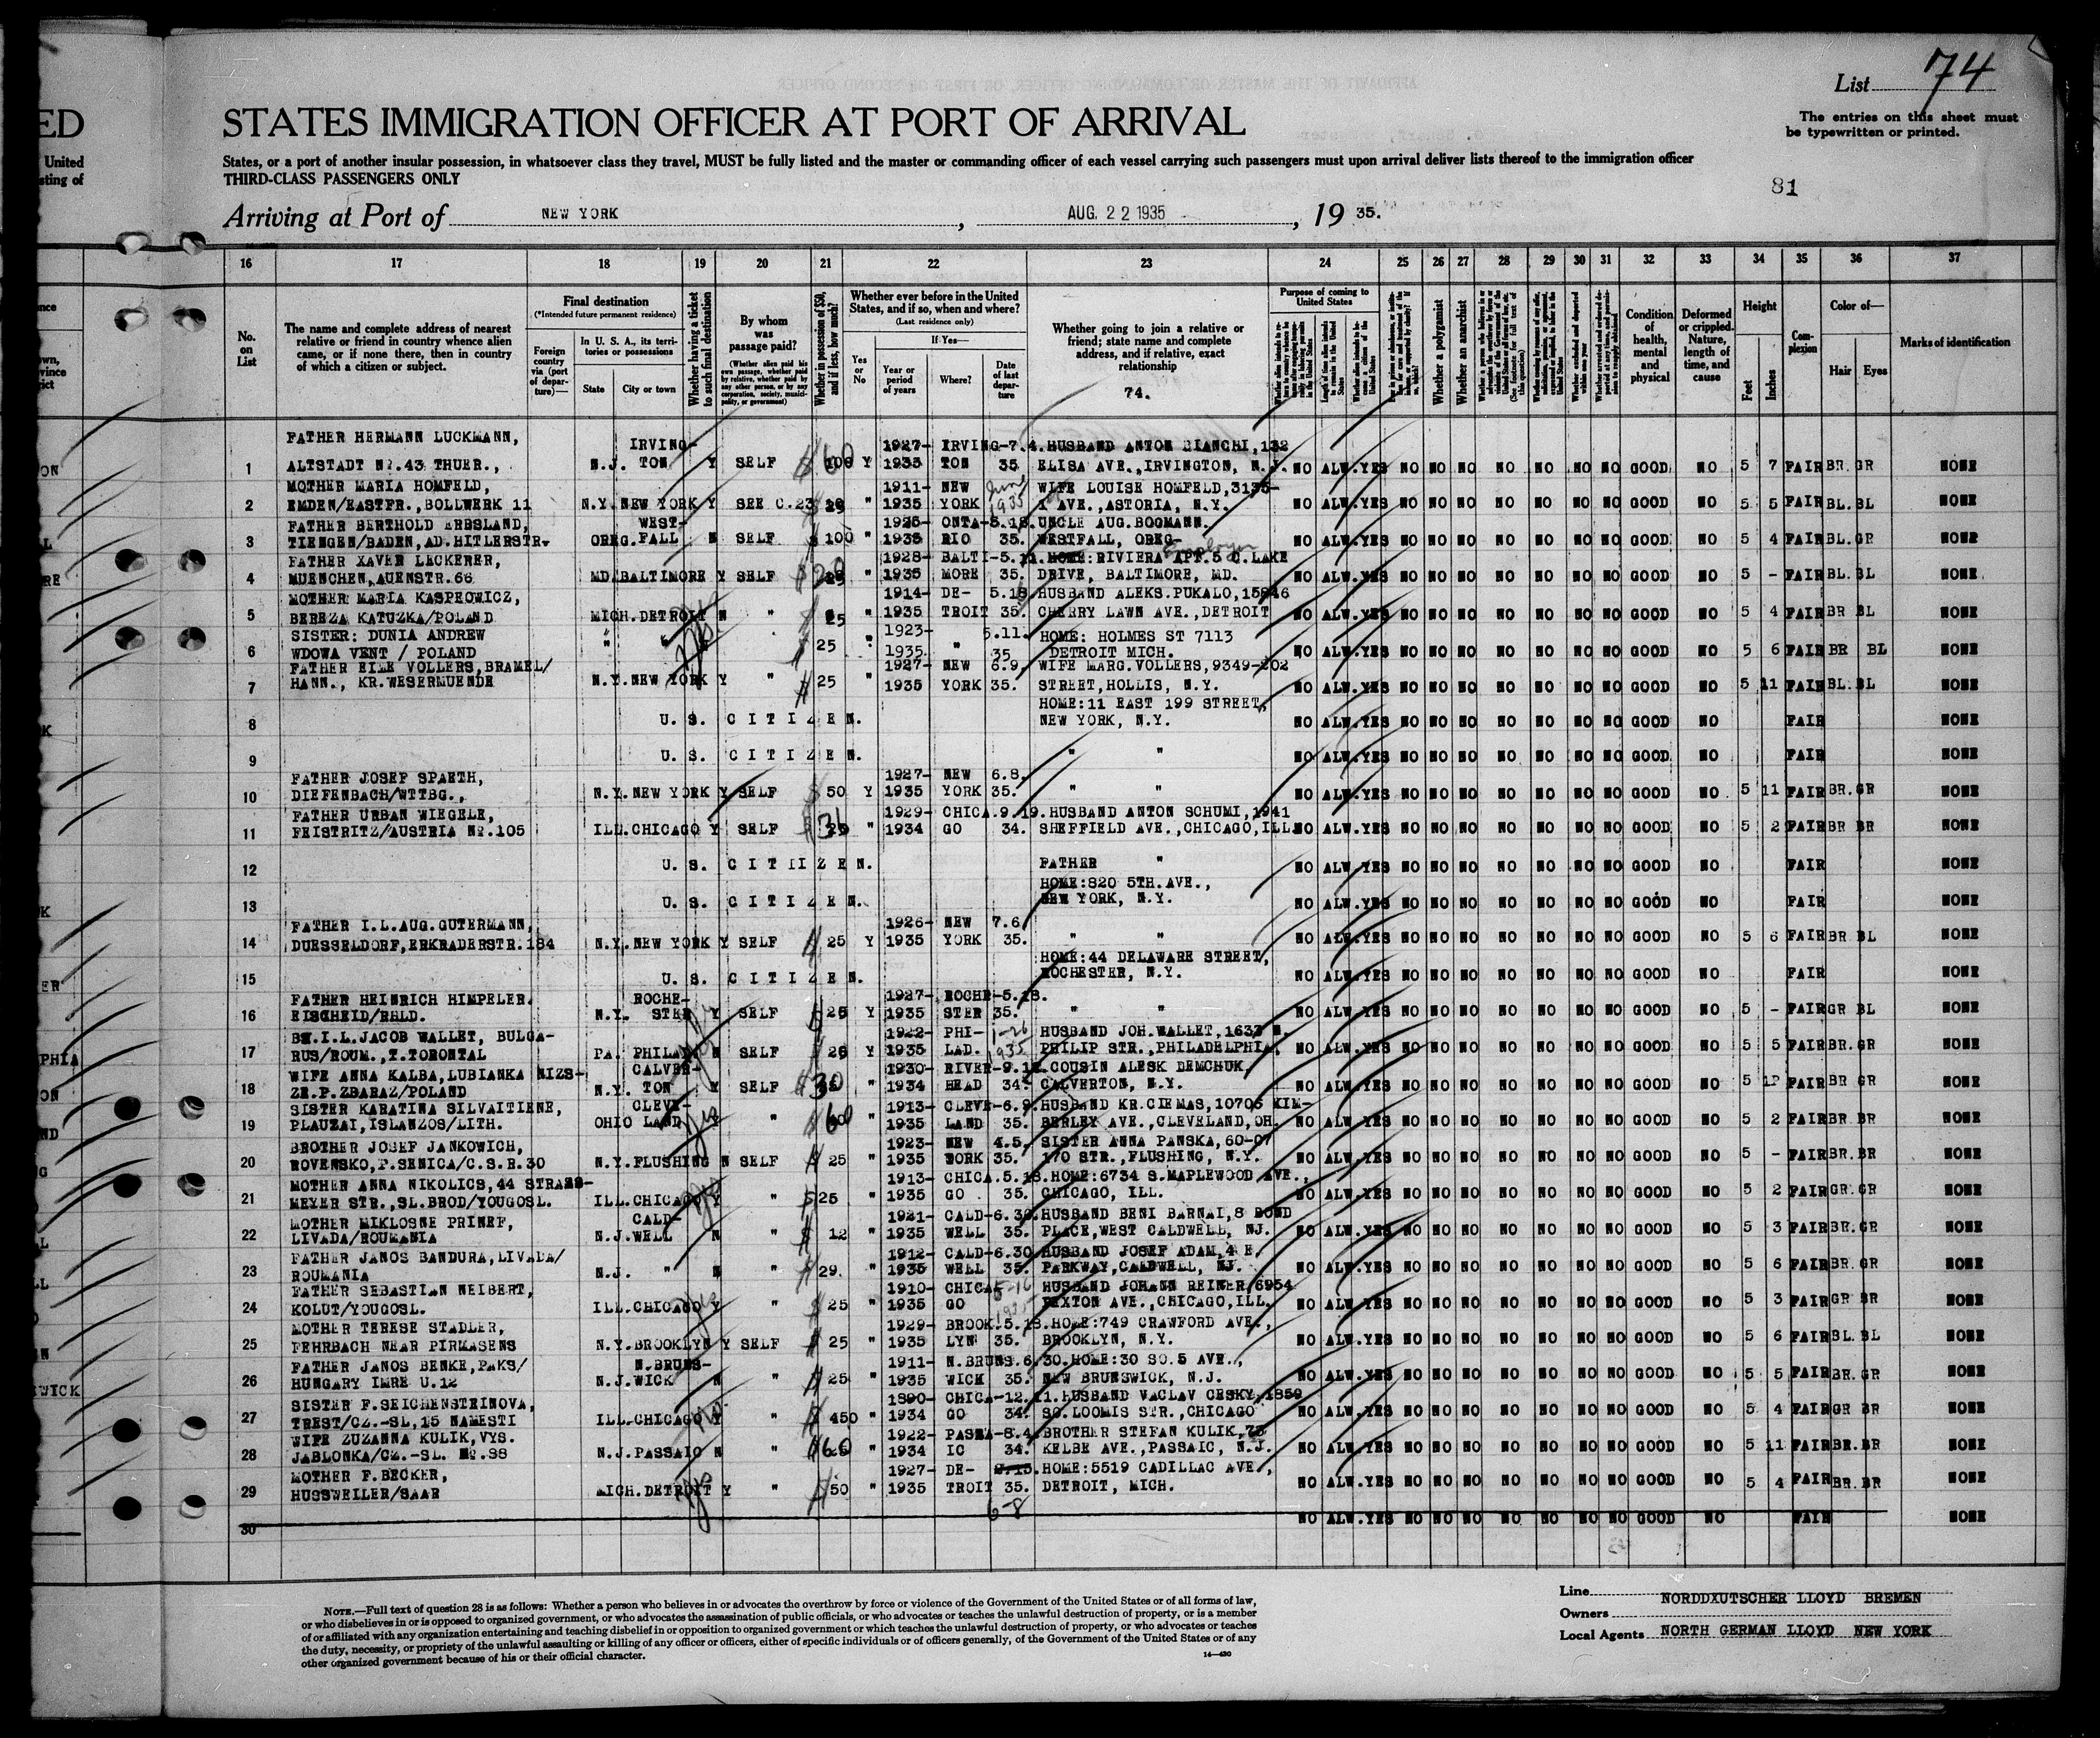 74
List
The entries on this sheet must
be typewritten or printed.
ED
STATES IMMIGRATION OFFICER AT PORT OF ARRIVAL
United
sting of
States, or a port of another insular possession, in whatsoever class they travel, MUST be fully listed and the master or commanding officer of each vessel carrying such passengers must upon arrival deliver lists thereof to the immigration officer
THIRD-CLASS PASSENGERS ONLY
81
Arriving at Port of NEW YORK, AUG. 22 1935, 19 35.
16 17 18 19 20 21 22 23 24 25 26 27 28 29 30 31 32 33 34 35 36 37
No. on List
The name and complete address of nearest
relative or friend in country whence alien
came, or if none there, then in country
of which a citizen or subject.
Final destination
(*Intended future permanent residence)
Foreign country via (port of departure)—
In U. S. A., its territories or possessions
State
City or town
Whether having a ticket to such final destination
By whom was passage paid?
Whether in possession of $50, and if less, how much?
Whether ever before in the United
States, and if so, when and where?
(Last residence only)
Yes or No
If Yes—
Year or period of years
Where?
Date of last departure
Whether going to join a relative or
friend; state name and complete
address, and if relative, exact
relationship
74.
Purpose of coming to United States
Whether a polygamist
Whether an anarchist
Condition of health, mental and physical
Deformed or crippled. Nature, length of time, and cause
Height
Feet
Inches
Complexion
Color of—
Hair
Eyes
Marks of identification
FATHER HERMANN LUCKMANN, IRVING- 1927- IRVING-7.4. HUSBAND ANTON BIANCHI, 132
1 ALTSTADT No.43 THUER., N.J. TON Y SELF 60 Y 1935 TON 35 ELISA AVE., IRVINGTON, N.J. NO ALW. YES NO NO NO NO NO NO NO GOOD NO 5 7 FAIR BR. GR NONE
MOTHER MARIA HOMFELD, 1911- NEW June WIFE LOUISE HOMFELD, 3135-
2 EMDEN/EASTFR., BOLLWERK 11 N.Y. NEW YORK Y SEE C.23 " 1935 YORK 1935 AVE., ASTORIA, N.Y. NO ALW. YES NO NO NO NO NO NO NO GOOD NO 5 5 FAIR BL. BL NONE
FATHER BERTHOLD ERBSLAND, WEST- 1925- ONTA-5.18. UNCLE AUG. BOGMANN.
3 TIENGEN/BADEN, AD. HITLERSTR. OREG. FALL N SELF 100 " 1935 RIO 35. WESTFALL, OREG- NO ALW. YES NO NO NO NO NO NO NO GOOD NO 5 4 FAIR BL. GR NONE
Employer
FATHER XAVER LACKERER, 1928- BALTI-5.11. HOME: RIVIERA APT. 5 C. LAKE
4 MUENCHEN, AUENSTR. 66 MD. BALTIMORE Y SELF " 1935 MORE 35. DRIVE, BALTIMORE, MD. NO ALW. YES NO NO NO NO NO NO NO GOOD NO 5 - FAIR BL. BL NONE
MOTHER MARIA KASPROWICZ, 1914- DE- 5.18. HUSBAND ALEKS. PUKALO, 15846
5 BEREZA KATUZKA/POLAND MICH. DETROIT N " 25 " 1935 TROIT 35. CHERRY LAWN AVE., DETROIT NO ALW. YES NO NO NO NO NO NO NO GOOD NO 5 4 FAIR BR BL NONE
SISTER: DUNIA ANDREW 1923- 5.11. HOME: HOLMES ST 7113
6 WDOWA VENT / POLAND " " 25 " 1935. " 35 DETROIT MICH. NO ALW. YES NO NO NO NO NO NO NO GOOD NO 5 6 FAIR BR BL NONE
FATHER EILE VOLLERS, BRAMEL/ 1927- NEW 6.9. WIFE MARG. VOLLERS, 9349-202
7 HANN., KR. WESERMUENDE N.Y. NEW YORK Y " $ 25 " 1935 YORK 35. STREET, HOLLIS, N.Y. NO ALW. YES NO NO NO NO NO NO NO GOOD NO 5 11 FAIR BL. BL NONE
HOME: 11 EAST 199 STREET,
8 U. S. CITIZEN. NEW YORK, N.Y. NO ALW. YES NO NO NO NO NO NO NO GOOD NO FAIR NONE
9 U. S. CITIZEN. " " NO ALW. YES NO NO NO NO NO NO NO GOOD NO FAIR NONE
FATHER JOSEF SPAETH, 1927- NEW 6.8.
10 DIEFENBACH/WTTBG., N.Y. NEW YORK Y SELF $ 50 Y 1935 YORK 35. " " NO ALW. YES NO NO NO NO NO NO NO GOOD NO 5 11 FAIR BR. GR NONE
FATHER URBAN WIEGELE, 1929- CHICA. 9.19. HUSBAND ANTON SCHUMI, 1941
11 FEISTRITZ/AUSTRIA No.105 ILL. CHICAGO Y SELF " 1934 GO 34. SHEFFIELD AVE., CHICAGO, ILL. NO ALW. YES NO NO NO NO NO NO NO GOOD NO 5 2 FAIR BR BR NONE
12 U. S. CITIIZEN. FATHER " NO ALW. YES NO NO NO NO NO NO NO GOOD NO FAIR NONE
HOME: 820 5TH. AVE.,
13 U. S. CITIZEN. NEW YORK, N.Y. NO ALW. YES NO NO NO NO NO NO NO GOOD NO FAIR NONE
FATHER I.L. AUG. GUTERMANN, 1926- NEW 7.6.
14 DUESSELDORF, ERKRADERSTR. 184 N.Y. NEW YORK Y SELF $ 25 Y 1935 YORK 35. " " NO ALW. YES NO NO NO NO NO NO NO GOOD NO 5 6 FAIR BR BL NONE
HOME: 44 DELAWARE STREET,
15 U. S. CITIZEN. ROCHESTER, N.Y. NO ALW. YES NO NO NO NO NO NO NO GOOD NO FAIR NONE
FATHER HEINRICH HIMPELER. ROCHE- 1927- ROCHE-5.18.
16 EISCHEID/RHLD. N.Y. STER Y SELF $ 25 Y 1935 STER 35. " " NO ALW. YES NO NO NO NO NO NO NO GOOD NO 5 - FAIR GR BL NONE
I.L. JACOB WALLET, BULGA- 1922- PHI- 1-26 HUSBAND JOH. WALLET, 1637 N.
17 RUS/ROUM., T. TORONTAL PA. PHILAD. N SELF 25 Y 1935 LAD. 1935 PHILIP STR., PHILADELPHIA, NO ALW. YES NO NO NO NO NO NO NO GOOD NO 5 5 FAIR BR. GR NONE
WIFE ANNA KALBA, LUBIANKA NIZS- CALVER- 1930- RIVER-9. COUSIN ALESK DEMCHUK,
18 ZE. P. ZBARAZ/POLAND N.Y. TON Y SELF $ 30 " 1934 HEAD 34. CALVERTON, N.Y. NO ALW. YES NO NO NO NO NO NO NO GOOD NO 5 FAIR BR GR NONE
SISTER KARATINA SILVAITIENE, CLEVE- 1913- CLEVE-6.9. HUSBAND KR. CIEMAS, 10705 KIM-
19 PLAUZAI, ISLANZOS/LITH. OHIO LAND Y " 60 " 1935 LAND 35. BERLEY AVE., CLEVELAND, OH. NO ALW. YES NO NO NO NO NO NO NO GOOD NO 5 2 FAIR BR. BR NONE
BROTHER JOSEF JANKOWICH, 1923- NEW 4.5. SISTER ANNA PANSKA, 60-07
20 ROVENSKO, P. SENICA/C.S.R. 30 N.Y. FLUSHING N SELF $ 25 " 1935 YORK 35. 170 STR., FLUSHING, N.Y. NO ALW. YES NO NO NO NO NO NO NO GOOD NO 5 - FAIR BR. BR NONE
MOTHER ANNA NIKOLICS, 44 STRASS- 1913- CHICA. 5.18. HOME: 6734 S. MAPLEWOOD AVE.,
21 MEYER STR., SL. BROD/YOUGOSL. ILL. CHICAGO Y " $ 25 " 1935 GO 35. CHICAGO, ILL. NO ALW. YES NO NO NO NO NO NO NO GOOD NO 5 2 FAIR GR. GR NONE
MOTHER MIKLOSNE PRINEF, CALD- 1921- CALD-6.30. HUSBAND BENI BARNAI, 8 BOND
22 LIVADA/ROUMANIA N.J. WELL N " $ 12 " 1935 WELL 35. PLACE, WEST CALDWELL, NJ. NO ALW. YES NO NO NO NO NO NO NO GOOD NO 5 3 FAIR BR. GR NONE
FATHER JANOS BANDURA, LIVADA/ 1912- CALD-6.30. HUSBAND JOSEF ADAM, 4 E.
23 ROUMANIA N.J. " N " 29. " 1935 WELL 35. PARKWAY, CALDWELL, NJ. NO ALW. YES NO NO NO NO NO NO NO GOOD NO 5 6 FAIR BR. GR NONE
FATHER SEBASTIAN NEIBERT, 1910- CHICA 5-16 HUSBAND JOHANN REINER, 6954
24 KOLUT/YOUGOSL. ILL. CHICAGO Y " $ 25 " 1935 GO 1935 PAXTON AVE., CHICAGO, ILL. NO ALW. YES NO NO NO NO NO NO NO GOOD NO 5 3 FAIR GR BR NONE
MOTHER TERESE STADLER, 1929- BROOK. 5.18. HOME: 749 CRAWFORD AVE.,
25 FEHRBACH NEAR PIRMASENS N.Y. BROOKLYN Y SELF $ 25 " 1935 LYN 35. BROOKLYN, N.Y. NO ALW. YES NO NO NO NO NO NO NO GOOD NO 5 6 FAIR BL. BL NONE
FATHER JANOS BENKE, PAKS/ N. BRUNS- 1911- N. BRUNS. 6.30. HOME: 30 SO. 5 AVE.,
26 HUNGARY IMRE U. 12 N.J. WICK N " $ 25 " 1935 WICK 35. NEW BRUNSWICK, N.J. NO ALW. YES NO NO NO NO NO NO NO GOOD NO 5 5 FAIR BR. GR NONE
SISTER F. SEICHENSTRINOVA, 1890- CHICA-12.11. HUSBAND VACLAV CESKY, 1859
27 TREST/CZ.-SL, 15 NAMESTI ILL. CHICAGO Y " $ 450 " 1934 GO 34. SO. LOOMIS STR., CHICAGO NO ALW. YES NO NO NO NO NO NO NO GOOD NO 5 4 FAIR GR BR NONE
WIFE ZUZANNA KULIK, VYS. 1922- PASSA-8.4. BROTHER STEFAN KULIK, 73
28 JABLONKA/CZ.-SL. No.98 N.J. PASSAIC N " $60 " 1934 IC 34. KELBE AVE., PASSAIC, N.J. NO ALW. YES NO NO NO NO NO NO NO GOOD NO 5 11 FAIR BR. BR NONE
MOTHER F. BECKER, 1927- DE- HOME: 5519 CADILLAC AVE.,
29 HUSSWEILER/SAAR MICH. DETROIT Y " $ 50 " 1935 TROIT 35. DETROIT, MICH. NO ALW. YES NO NO NO NO NO NO NO GOOD NO 5 4 FAIR BR. BR NONE
6-8
30 NO ALW. YES NO NO NO NO NO NO NO GOOD NO FAIR NONE
NOTE.—Full text of question 28 is as follows: Whether a person who believes in or advocates the overthrow by force or violence of the Government of the United States or of all forms of law,
or who disbelieves in or is opposed to organized government, or who advocates the assassination of public officials, or who advocates or teaches the unlawful destruction of property, or is a member
of or affiliated with any organization entertaining and teaching disbelief in or opposition to organized government or which teaches the unlawful destruction of property, or who advocates or teaches
the duty, necessity, or propriety of the unlawful assaulting or killing of any officer or officers, either of specific individuals or of officers generally, of the Government of the United States or of any
other organized government because of his or their official character.
14—430
Line NORDDXUTSCHER LLOYD BREMEN
Owners
Local Agents NORTH GERMAN LLOYD NEW YORK